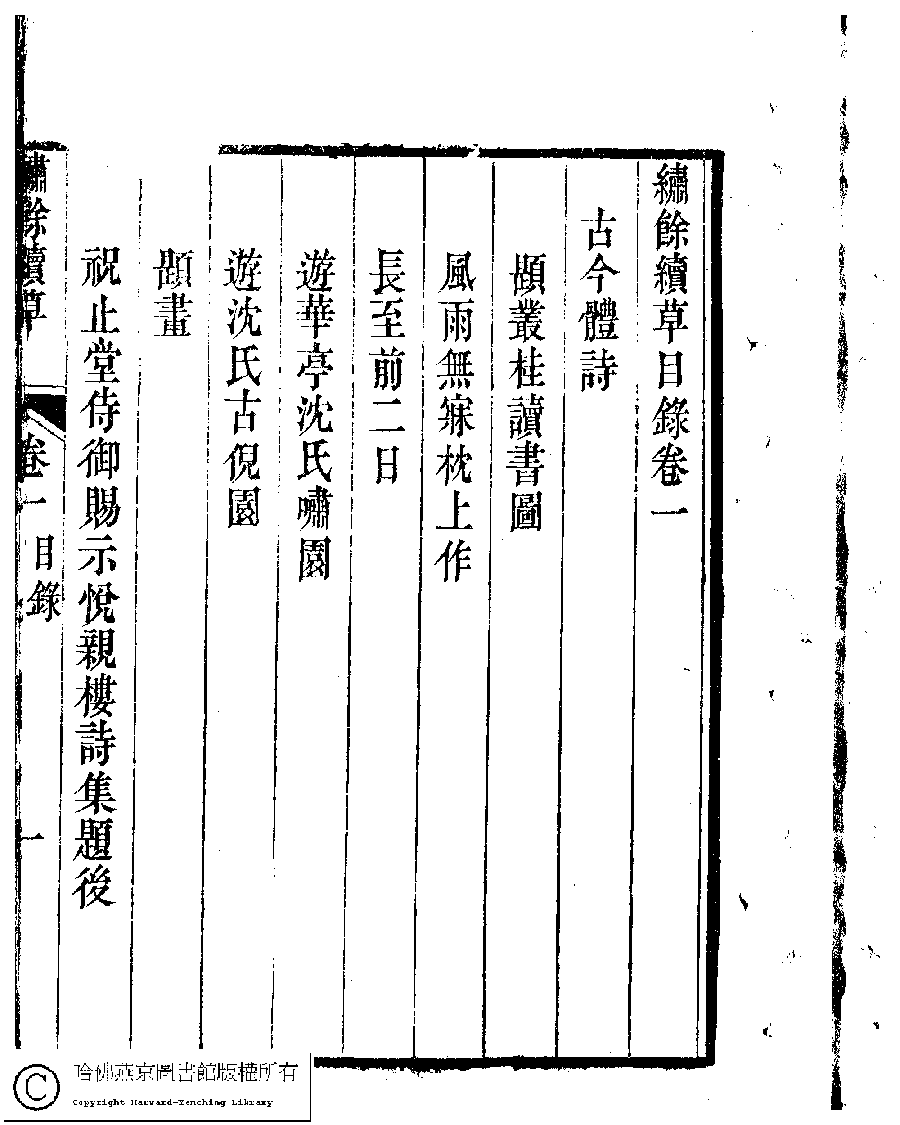 繡餘續草目錄卷一
古今體詩
題叢桂讀書圖
風雨無寐枕上作
長至前二日
遊華亭沈氏嘯園
遊沈氏古倪園
題畫
祝止堂侍御賜示悅親樓詩集題後
繡餘續草 卷一 目錄 一
哈佛燕京圖書館版權所有
Copyright Harvard-Yenching Library